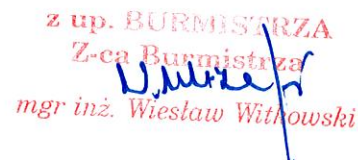 z up. BURMISTRZA
Z-ca Burmistrza
mgr inż. Wiesław Witkowski